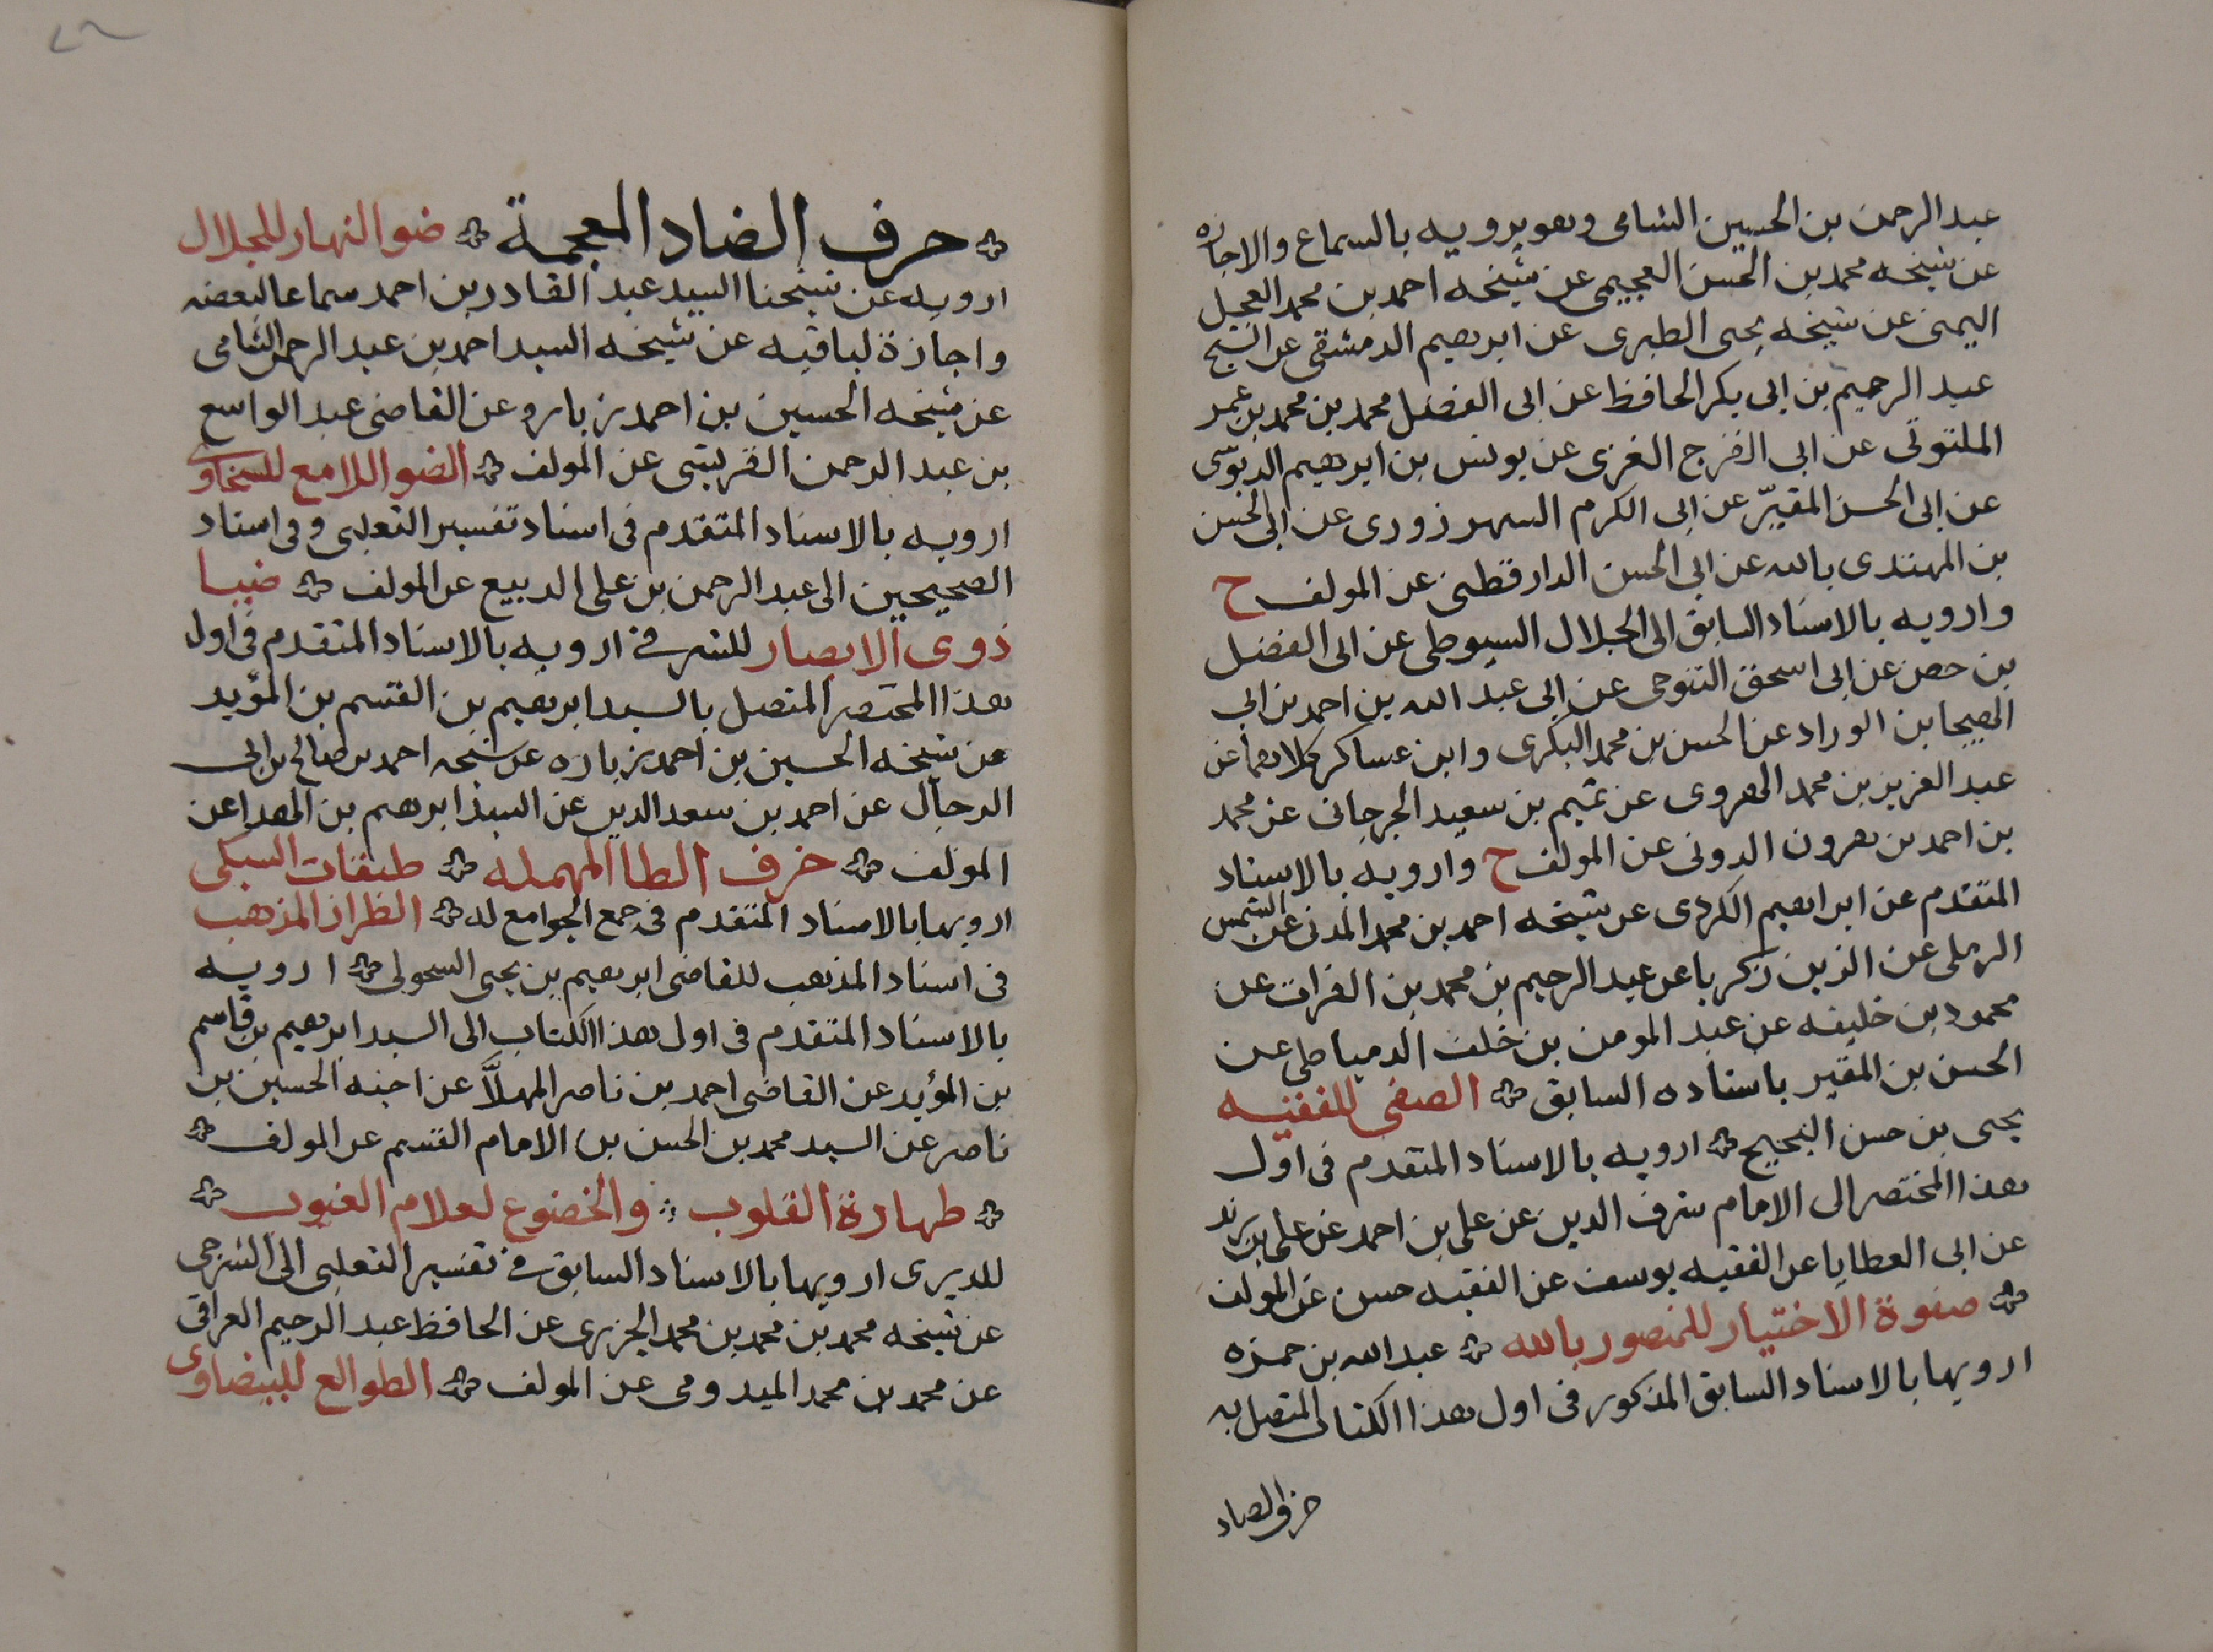 عبد الرحمن بن الحسين الشامى وهو يرويه بالسماع والاجازه
عن شيخه محمد بن الحسن العجيمى عن شيخه احمد بن محمد العجيل
اليمنى عن شيخه يحى الطبرى عن ابرهيم الدمشقى عن الشيخ
عبد الرحيم بن ابى بكر الحافظ عن ابى الفضل محمد بن محمد بن عمر
الملتوتى عن ابى الفرج الغزى عن يونس بن ابرهيم الدبوسى
عن ابى الحسن المقيّر عن ابى الكرم السهرزورى عن ابى الحسن
بن المهتدى بالله عن ابى الحسن الدارقطنى عن المولف ح
وارويه بالاسناد السابق الى الجلال السيوطى عن ابى الفضل
بن حصن عن ابى اسحق التنوحى عن ابى عبد الله بن احمد بن ابى
الهيجا بن الوراد عن الحسن بن محمد البكرى وابن عساكر كلاهما عن
عبد العزيز بن محمد الهروى عن تميم بن سعيد الجرجانى عن محمد
بن احمد بن هرون الدونى عن المولف ح وارويه بالاسناد
المتقدم عن ابراهيم الكردى عن شيخه احمد بن محمد المدنى عن الشمس
الرملى عن الزين زكريا عن عبد الرحيم بن محمد بن الفرات عن
محمود بن خليفه عن عبد المومن بن خلف الدمياطى عن
الحسن بن المقير باسناده السابق الصفى للفقيه
يحى بن حسن البحيح ارويه بالاسناد المتقدم فى اول
هذا المختصر الى الامام شرف الدين عن على بن احمد عن على بن زيد
عن ابى العطايا عن الفقيه يوسف عن الفقيه حسن عن المولف
صفوة الاختيار للمنصور بالله عبد الله بن حمزه
ارويها بالاسناد السابق المذكور فى اول هذا الكتاب المتصل به
حرف الضاد
حرف الضاد المعجمة ضو النهار للجلال
ارويه عن شيخنا السيد عبد القادر بن احمد سماعا لبعضه
واجازة لباقيه عن شيخه السيد احمد بن عبد الرحمن الشامى
عن شيخه الحسين بن احمد زباره عن القاضى عبد الواسع
بن عبد الرحمن القريشى عن المولف الضو اللامع للسخاوى
ارويه بالاسناد المتقدم فى اسناد تفسير الثعلبى وفى اسناد
الصحيحين الى عبد الرحمن بن على الديبع عن المولف ضيا
ذوى الابصار للشرفى ارويه بالاسناد المتقدم فى اول
هذا المختصر المتصل بالسيد ابرهيم بن القسم بن المؤيد
عن شيخه الحسين بن احمد زباره عن شيخه احمد بن صالح بن ابى
الرجال عن احمد بن سعد الدين عن السيد ابرهيم بن الهدا عن
المولف حرف الطا المهمله طبقات السبكى
ارويها بالاسناد المتقدم فى جمع الجوامع له الطراز المذهب
فى اسناد المذهب للقاضى ابرهيم بن يحى السحولى ارويه
بالاسناد المتقدم فى اول هذا الكتاب الى السيد ابرهيم بن قاسم
بن المؤيد عن القاضى احمد بن ناصر المهلاَّ عن اخيه الحسين بن
ناصر عن السيد محمد بن الحسن بن الامام القسم عن المولف
طهارة القلوب والخضوع لعلام الغيوب
للديرى ارويها بالاسناد السابق فى تفسير الثعلبى الى الشرجى
عن شيخه محمد بن محمد بن محمد الجزرى عن الحافظ عبد الرحيم العراقى
عن محمد بن محمد الميدومى عن المولف الطوالع للبيضاوى